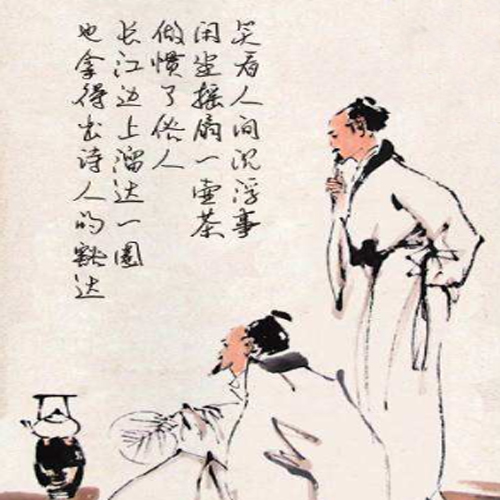 笑看人间沉浮事
闲坐摇扇一壶茶
做惯了俗人
长江边上溜达一圈
也拿得出诗人的豁达